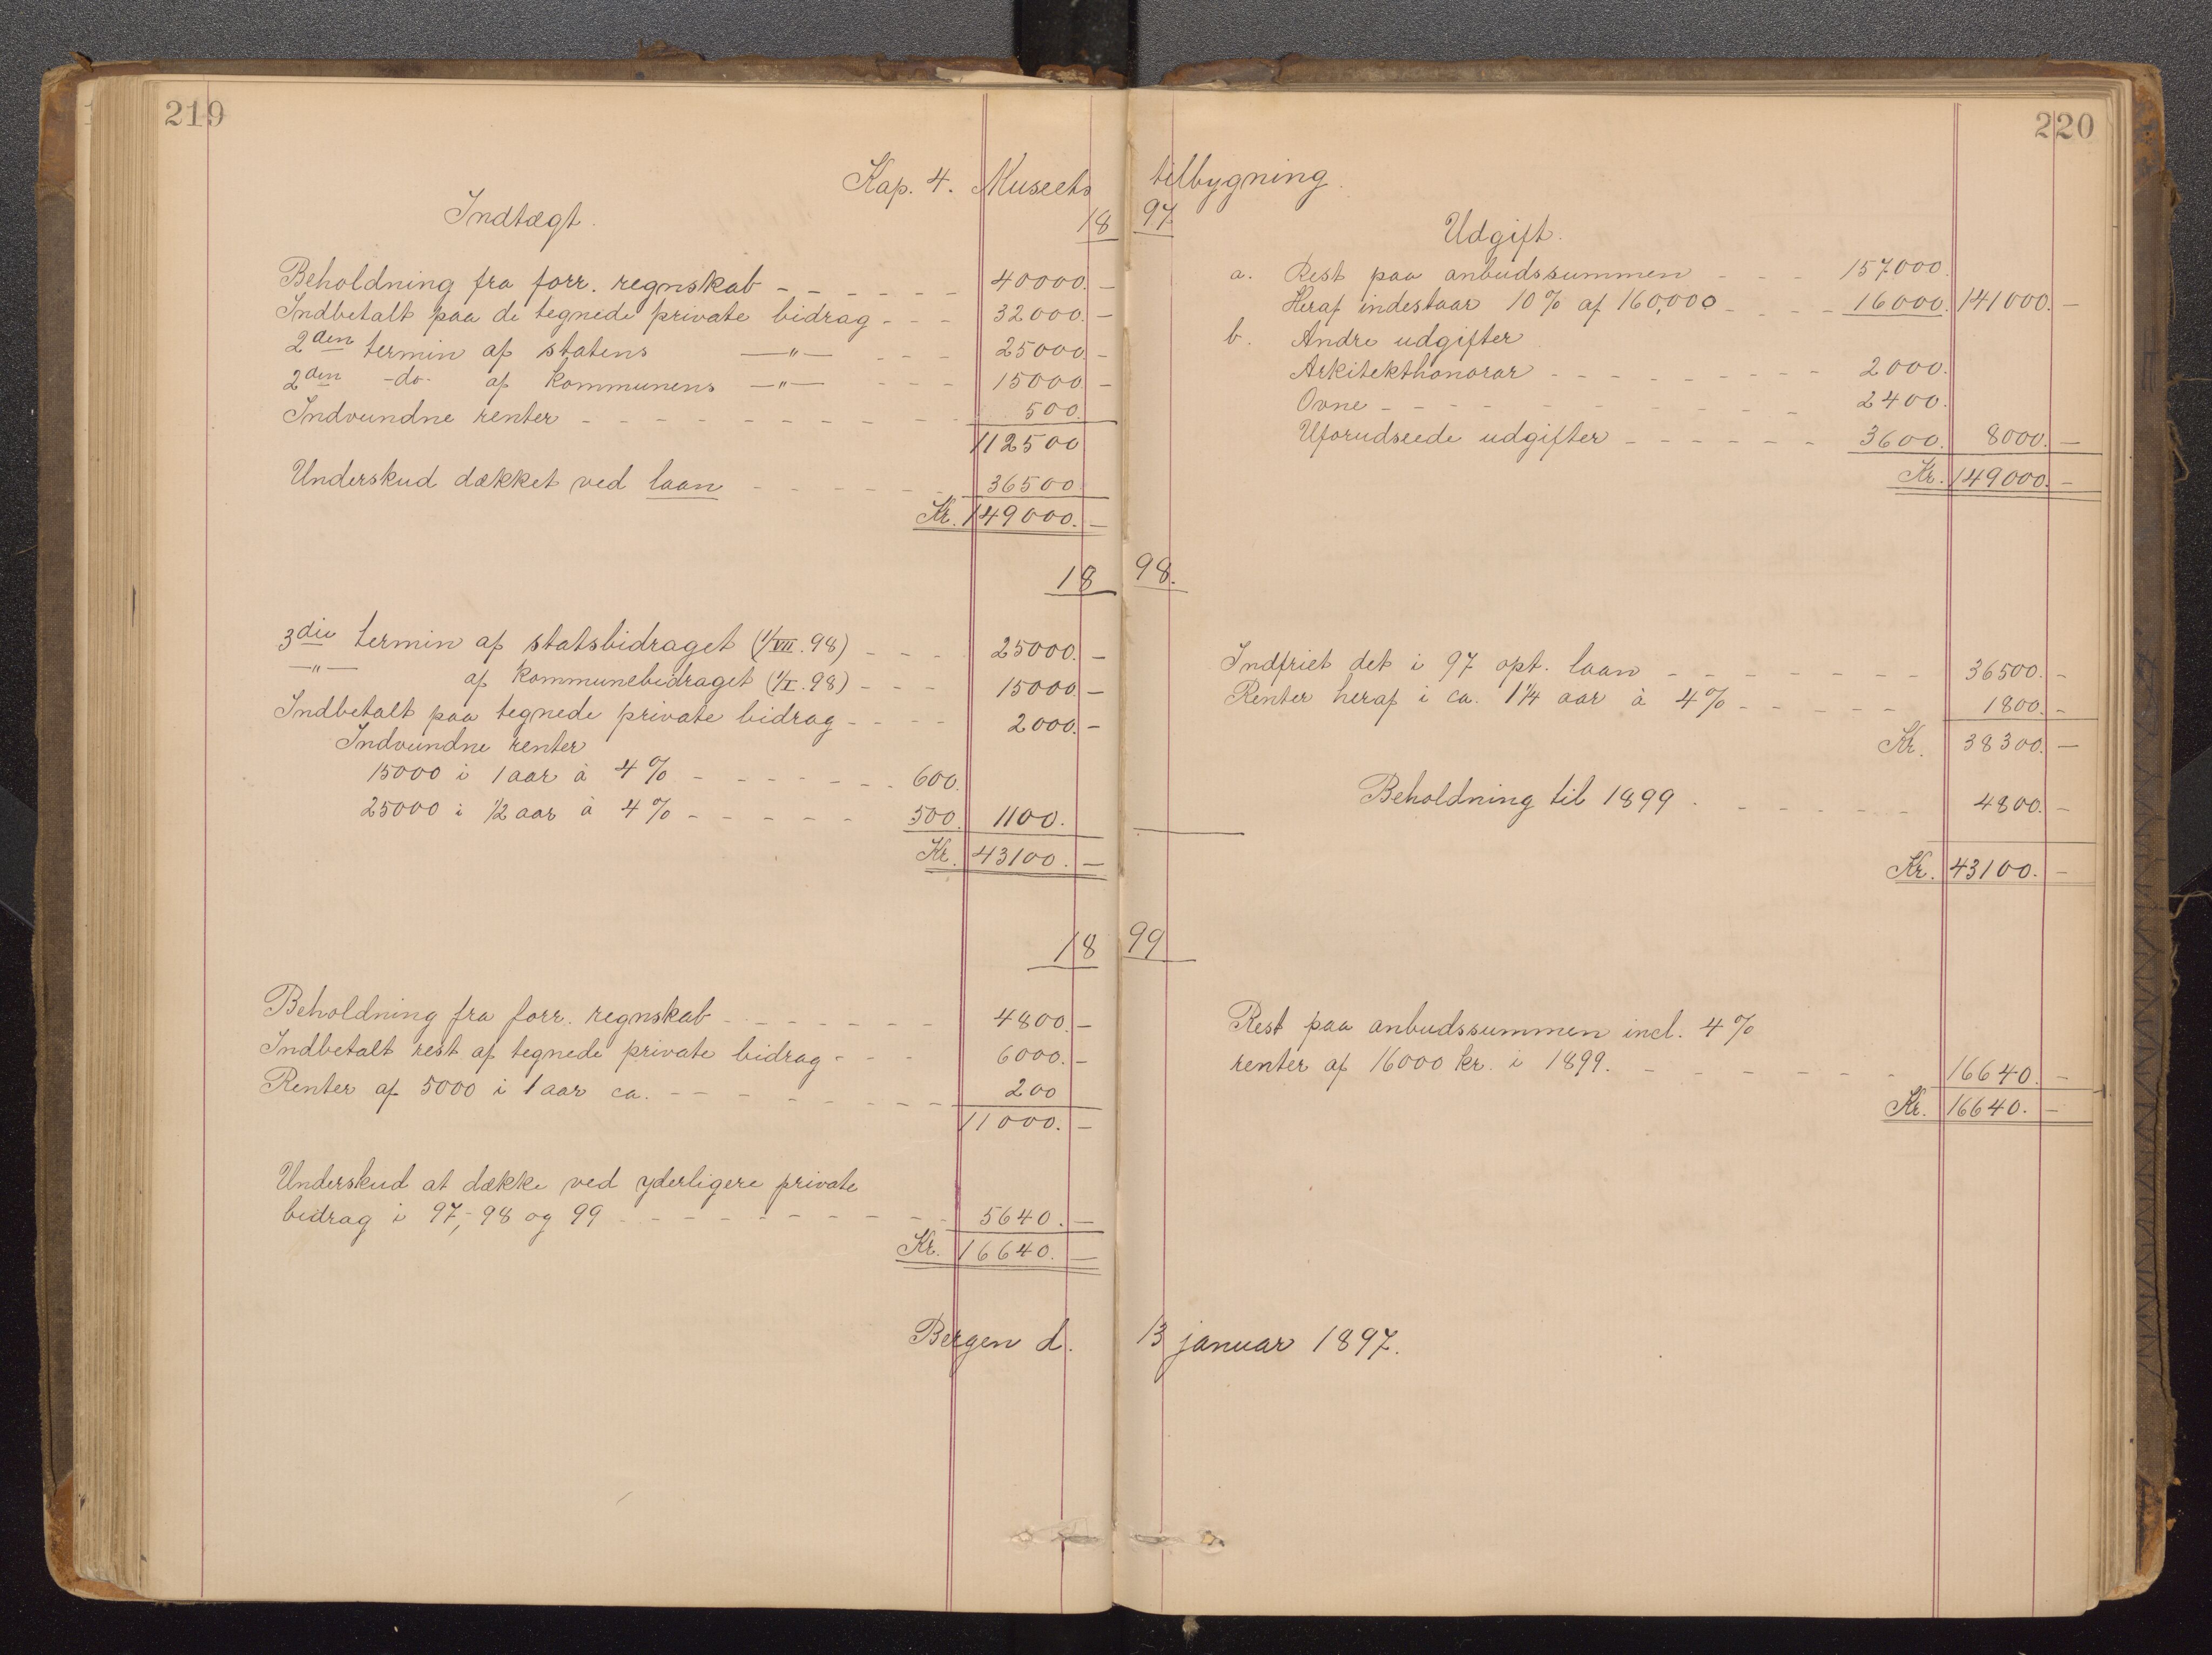 219
220
Kap. 4. Museets tilbygning.
1897
Indtægt.
Beholdning fra forr. regnskab - - - - - - 40000.-
Indbetalt paa de tegnede private bidrag - - - 32000.-
2den termin af statens —"— - - - 25000.-
2den -do- af kommunens —"— - - - 15000.-
Indvundne renter - - - - - - - - - 500.
112500
Underskud dækket ved laan - - - - - - 36500
Kr. 149000.-
Udgift.
a. Rest paa anbudssummen - - - 157000.
Heraf indestaar 10% af 160,000 - - - - 16000. 141000.-
b. Andre udgifter
Arkitekthonorar - - - - - - - - - 2000.
Ovne - - - - - - - - - 2400.
Uforudseede udgifter - - - - - - 3600. 8000.-
Kr. 149000.-
1898.
3die termin af statsbidraget (1/VII.98) - - - 25000.-
—"— af kommunebidraget (1/I.98) - - - 15000.-
Indbetalt paa tegnede private bidrag - - - - 2000.-
Indvundne renter
15000 i 1 aar à 4% - - - - - - 600.
25000 i ½ aar à 4% - - - - - 500. 1100.
Kr. 43100.-
Indfriet det i 97 opt. laan - - - - - - - 36500.-
Renter heraf i ca. 1¼ aar à 4% - - - - - 1800.-
Kr. 38300.-
Beholdning til 1899. - - - - - 4800.-
Kr. 43100.-
1899
Beholdning fra forr. regnskab - - - - - - - 4800.-
Indbetalt rest af tegnede private bidrag - - - 6000.-
Renter af 5000 i 1 aar ca. - - - - - - - - 200
11000.-
Underskud at dække ved yderligere private
bidrag i 97,- 98 og 99 - - - - - - - - - 5640.-
Kr. 16640.-
Rest paa anbudssummen incl. 4%
renter af 16000 kr. i 1899. - - - - - - - 16640.-
Kr. 16640.-
Bergen d. 13 januar 1897.